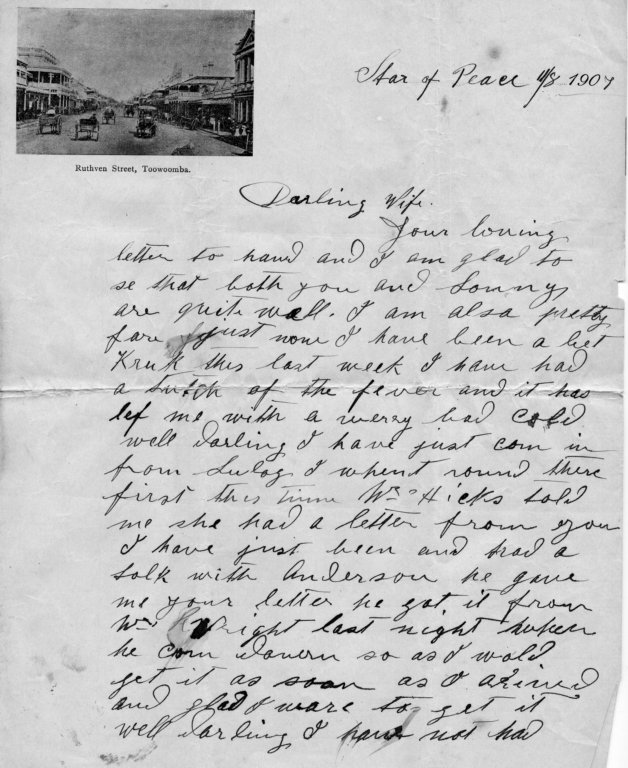 Ruthven Street, Toowoomba.
Star of Peace 11/8 1907
Darling Wife.
Your loving
letter to hand and I am glad to
se that both you and Sonny
are quite well. I am also pretty
fare just now I have been a bet
Kruk this last week I have had
a tutch of the fever and it has
lef me with a werry bad Cold
well darling I have just com in
from I whent round there
first this time Mrs Hicks told
me she had a letter from you
I have just been and had a
tolk with Anderson he gave
me your letter he got it from
Mr Wright last night when
he com down so as I wold
get it as soon as I arived
and glad I ware to get it
well darling I have not had